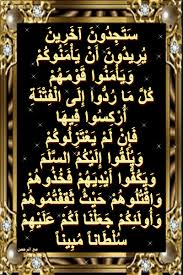 سَتَجِدُونَ آخَرِينَ
يُرِيدُونَ أَنْ يَأْمَنُوكُمْ
وَيَأْمَنُوا قَوْمَهُمْ
كُلَّ مَا رُدُّوا إِلَى الْفِتْنَةِ
أُرْكِسُوا فِيهَا
فَإِنْ لَمْ يَعْتَزِلُوكُمْ
وَيُلْقُوا إِلَيْكُمُ السَّلَمَ
وَيَكُفُّوا أَيْدِيَهُمْ فَخُذُوهُمْ
وَاقْتُلُوهُمْ حَيْثُ ثَقِفْتُمُوهُمْ
وَأُولَٰئِكُمْ جَعَلْنَا لَكُمْ عَلَيْهِمْ
سُلْطَانًا مُبِينًا